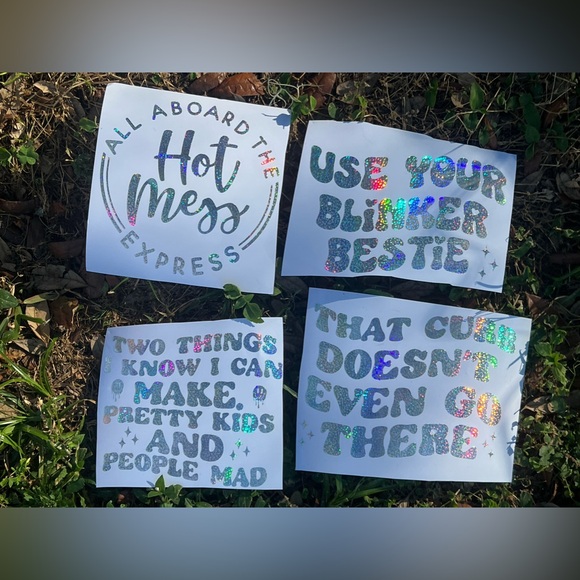 ALL ABOARD THE
Hot
Mess
EXPRESS
USE YOUR
BLiNKER
BESTiE
TWO THINGS
I KNOW I CAN
MAKE.
PRETTY KIDS
AND
PEOPLE MAD
THAT CURB
DOESN'T
EVEN GO
THERE